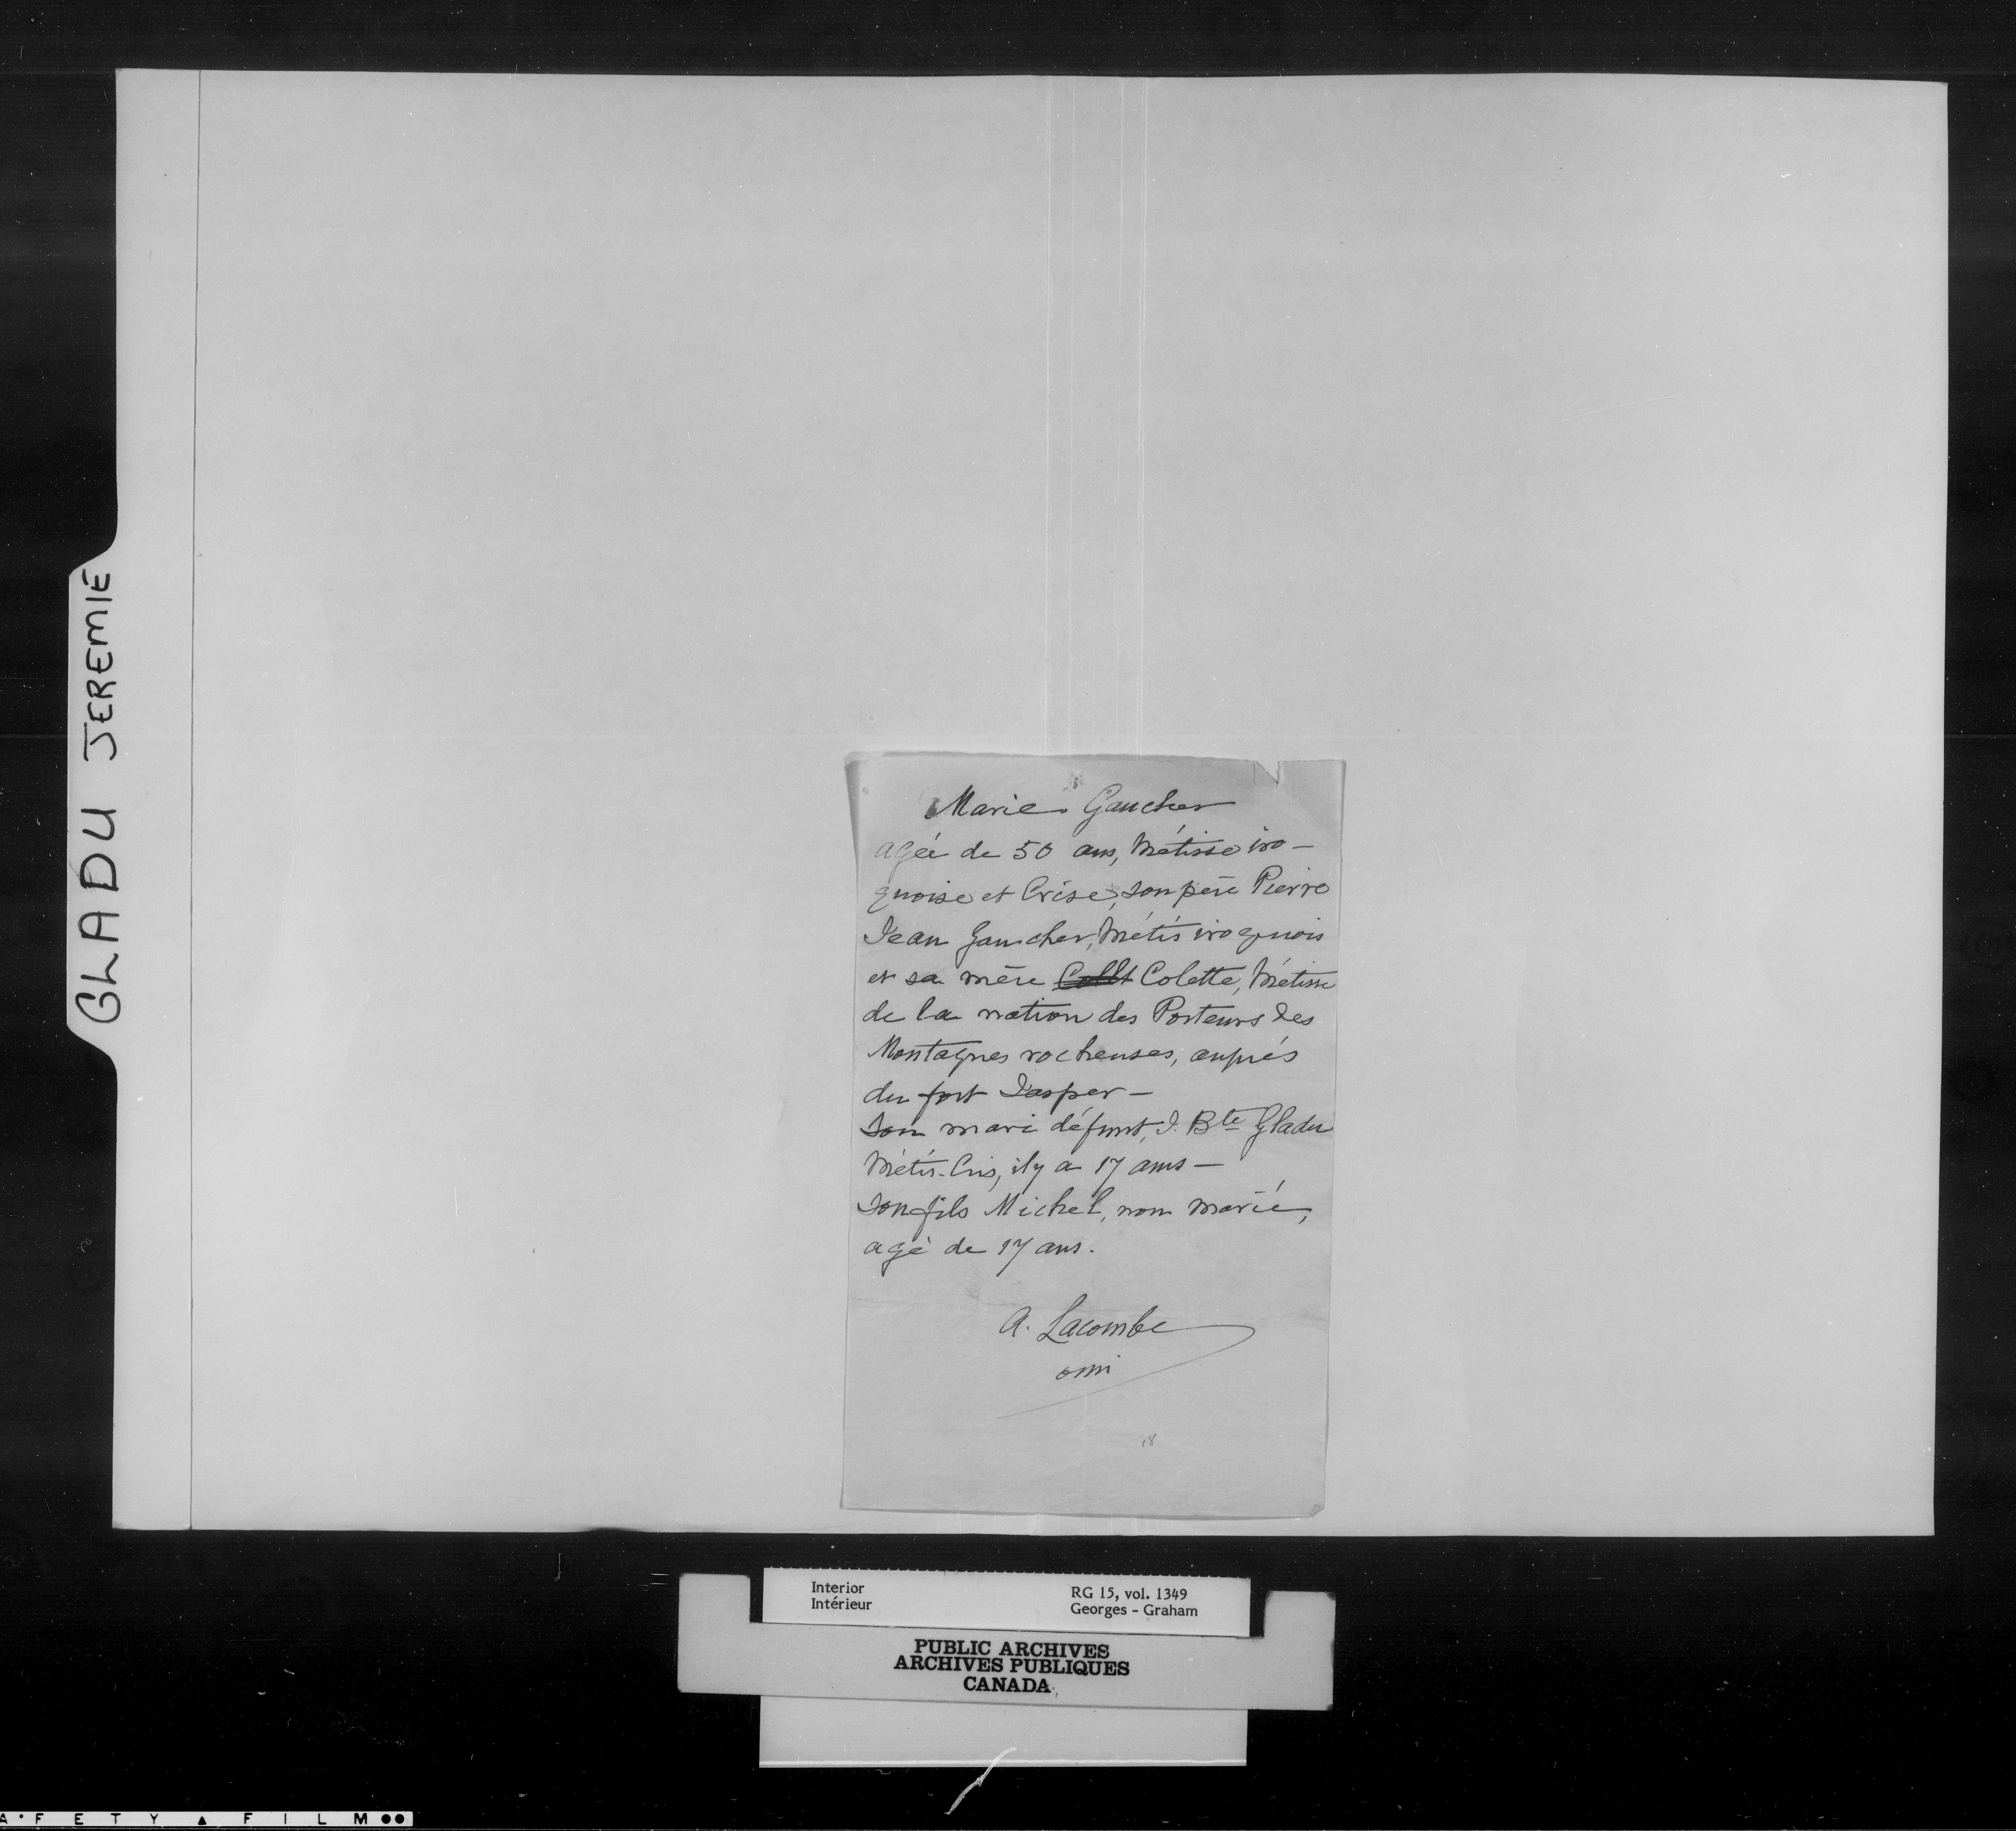 GLADU JEREMIE
Marie Gaucher
agée de 50 ans, Métisse iro-
quoise et Crise, son père Pierre
Jean Gaucher, Métis iroquois
et sa mère Collt Colette, Métisse
de la nation des Porteurs des
Montagnes rocheuses, auprés
du fort Jasper -
Son mari défunt, J. Bte Gladu
Métis-Cris, il y a 17 ans -
Son fils Michel, non marié,
agé de 17 ans.
A. Lacombe
omi
18
Interior
Intérieur
RG 15, vol. 1349
Georges - Graham
PUBLIC ARCHIVES
ARCHIVES PUBLIQUES
CANADA
A·FETY▲FILM●●